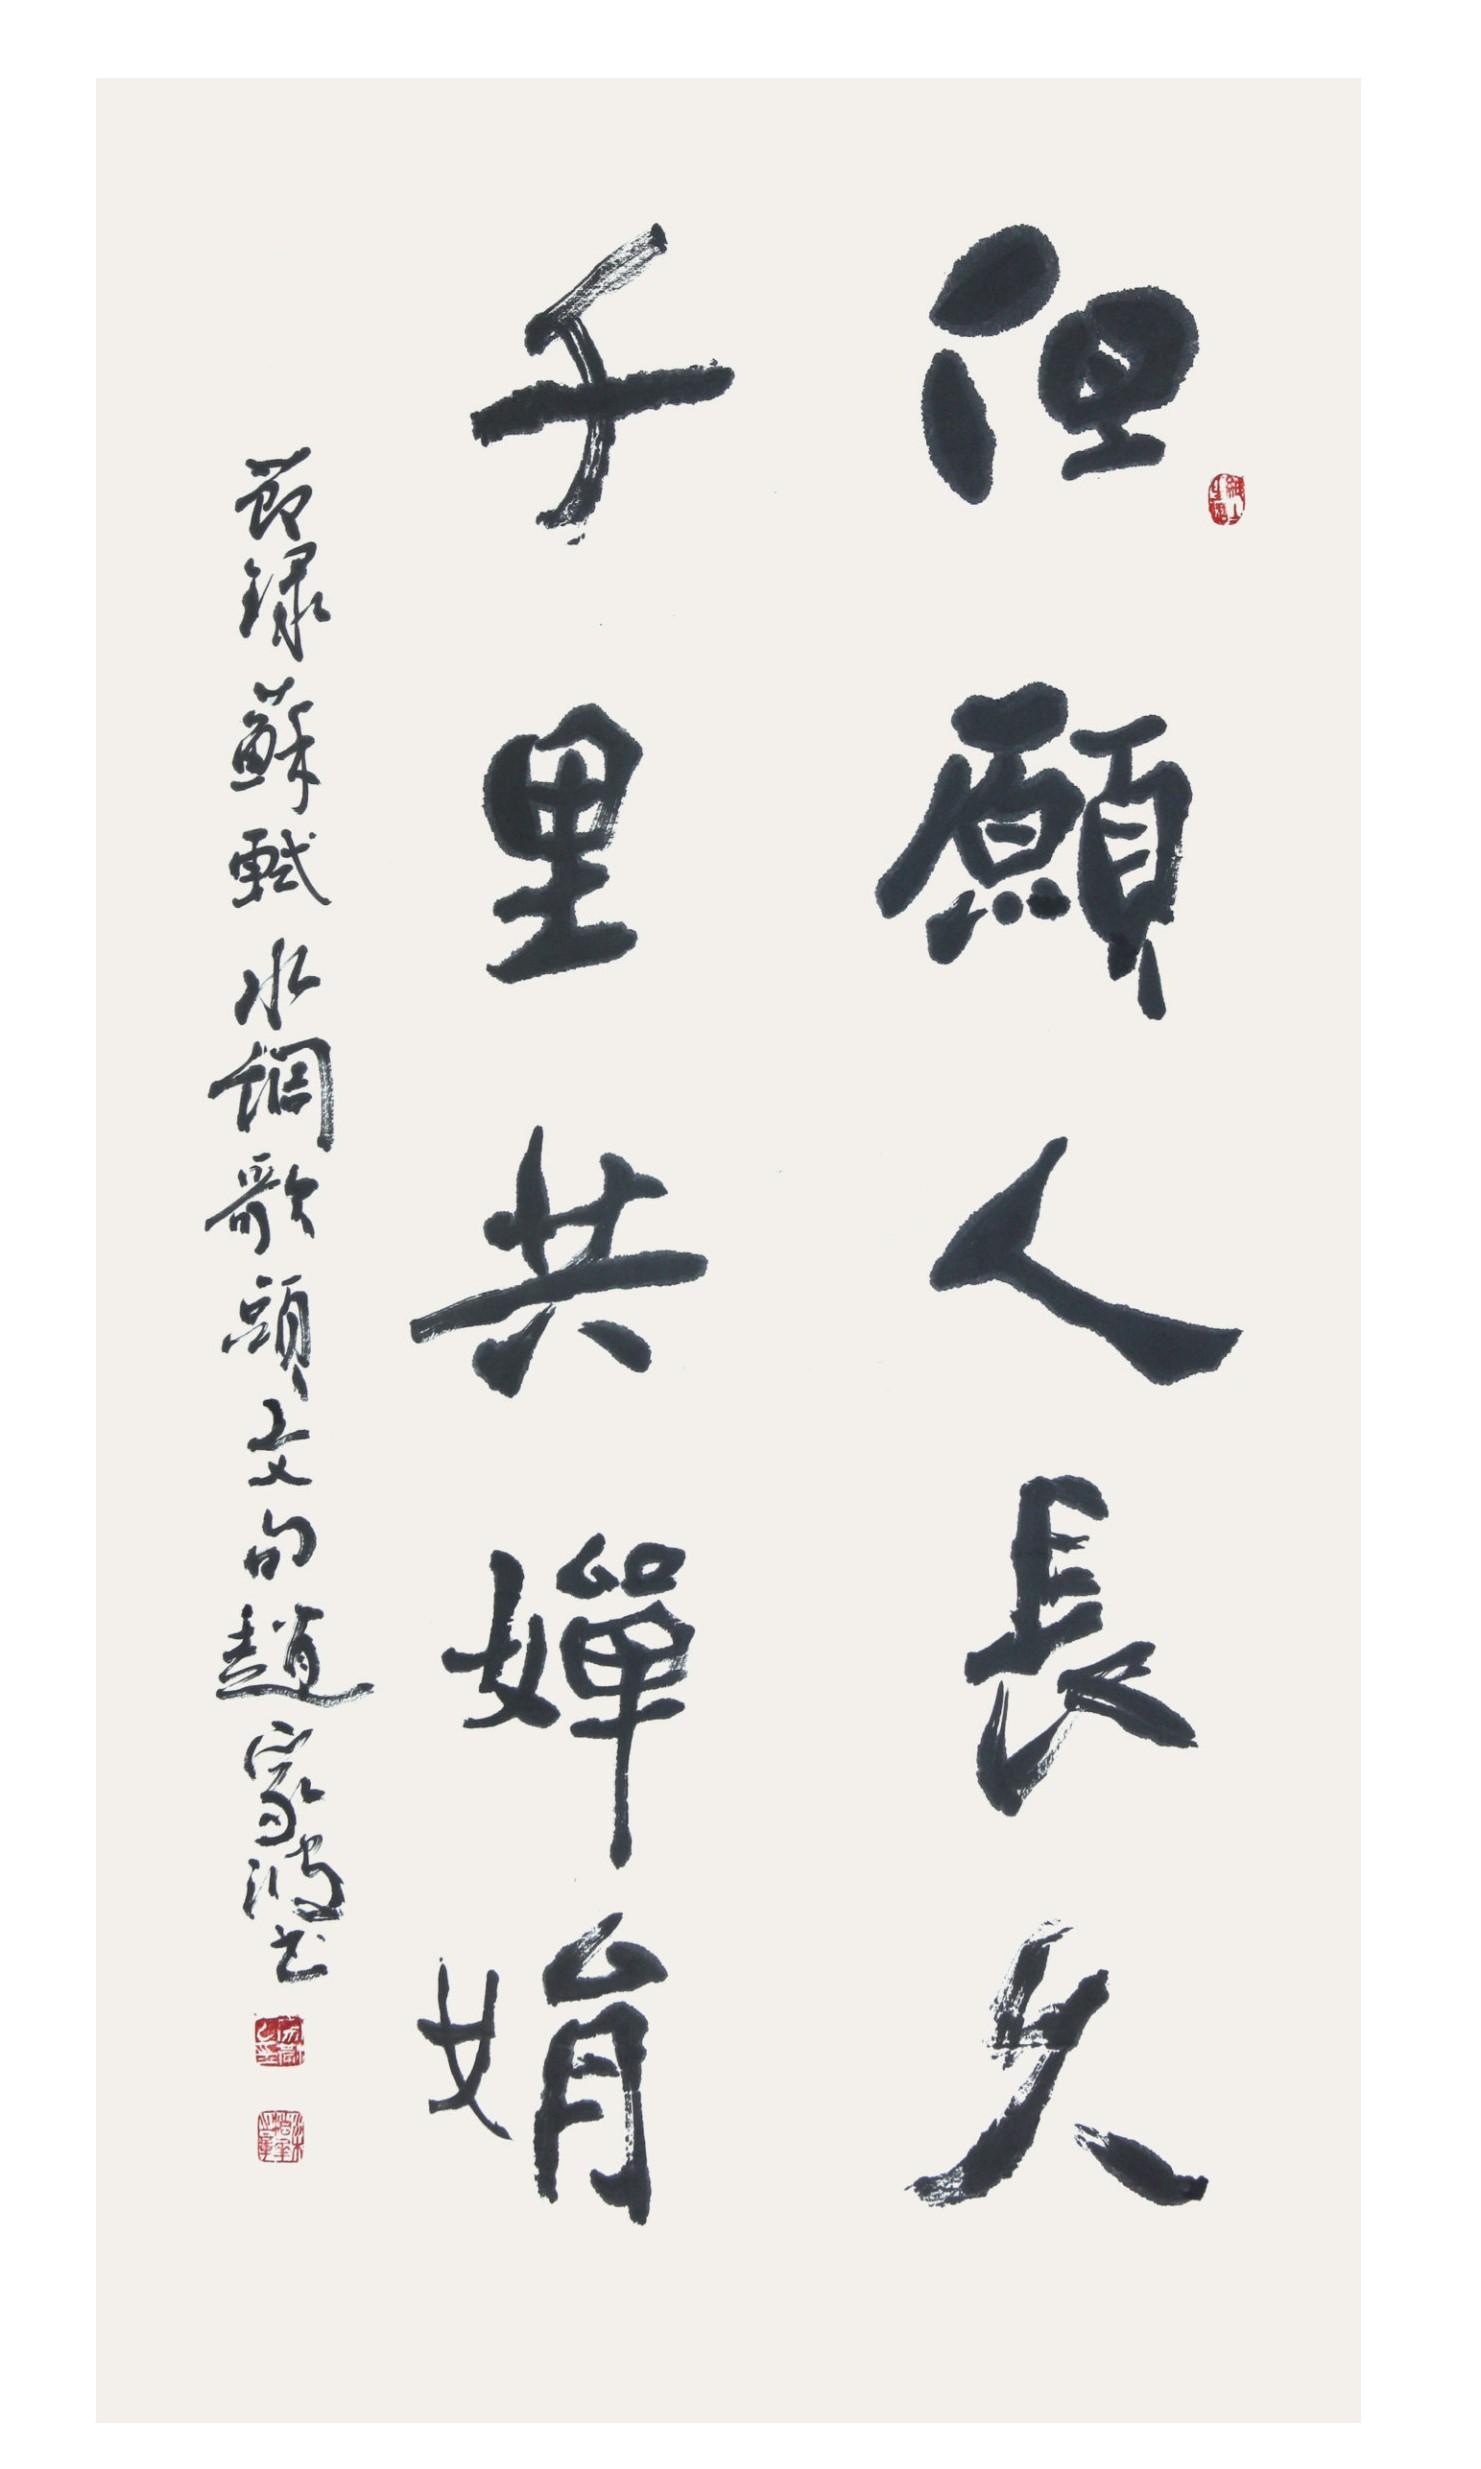 但願人長久
千里共嬋娟
節録蘇軾水調歌頭文句趙家波书